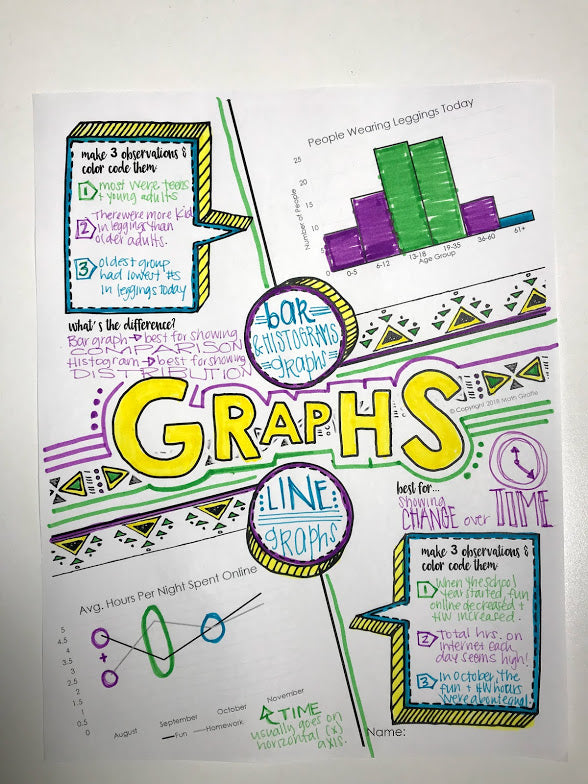 make 3 observations &
color code them:
1 most were teens
+ young adults
2 There were more kids
in leggings than
older adults.
3 oldest group
had lowest #s
in leggings today
what's the difference?
Bar graph → best for showing
COMPARISON
Histogram → best for showing
DISTRIBUTION
People Wearing Leggings Today
Number of People
25
20
15
10
5
0-5
6-12
13-18
19-35
36-60
61+
Age Group
bar
& HISTOGRAMS
graphs
GRAPHS
© Copyright 2018 Math Giraffe
LINE
graphs
best for...
showing
CHANGE over TIME
make 3 observations &
color code them:
1 When the school
year started, fun
online decreased +
HW increased.
2 Total hrs. on
internet each
day seems high!
3 In October, the
fun + HW hours
were about equal.
Avg. Hours Per Night Spent Online
5
4.5
4
3.5
3
2.5
2
1.5
1
0.5
0
+
August
September
October
November
Fun
Homework
TIME
usually goes on
horizontal (x)
axis.
Name: